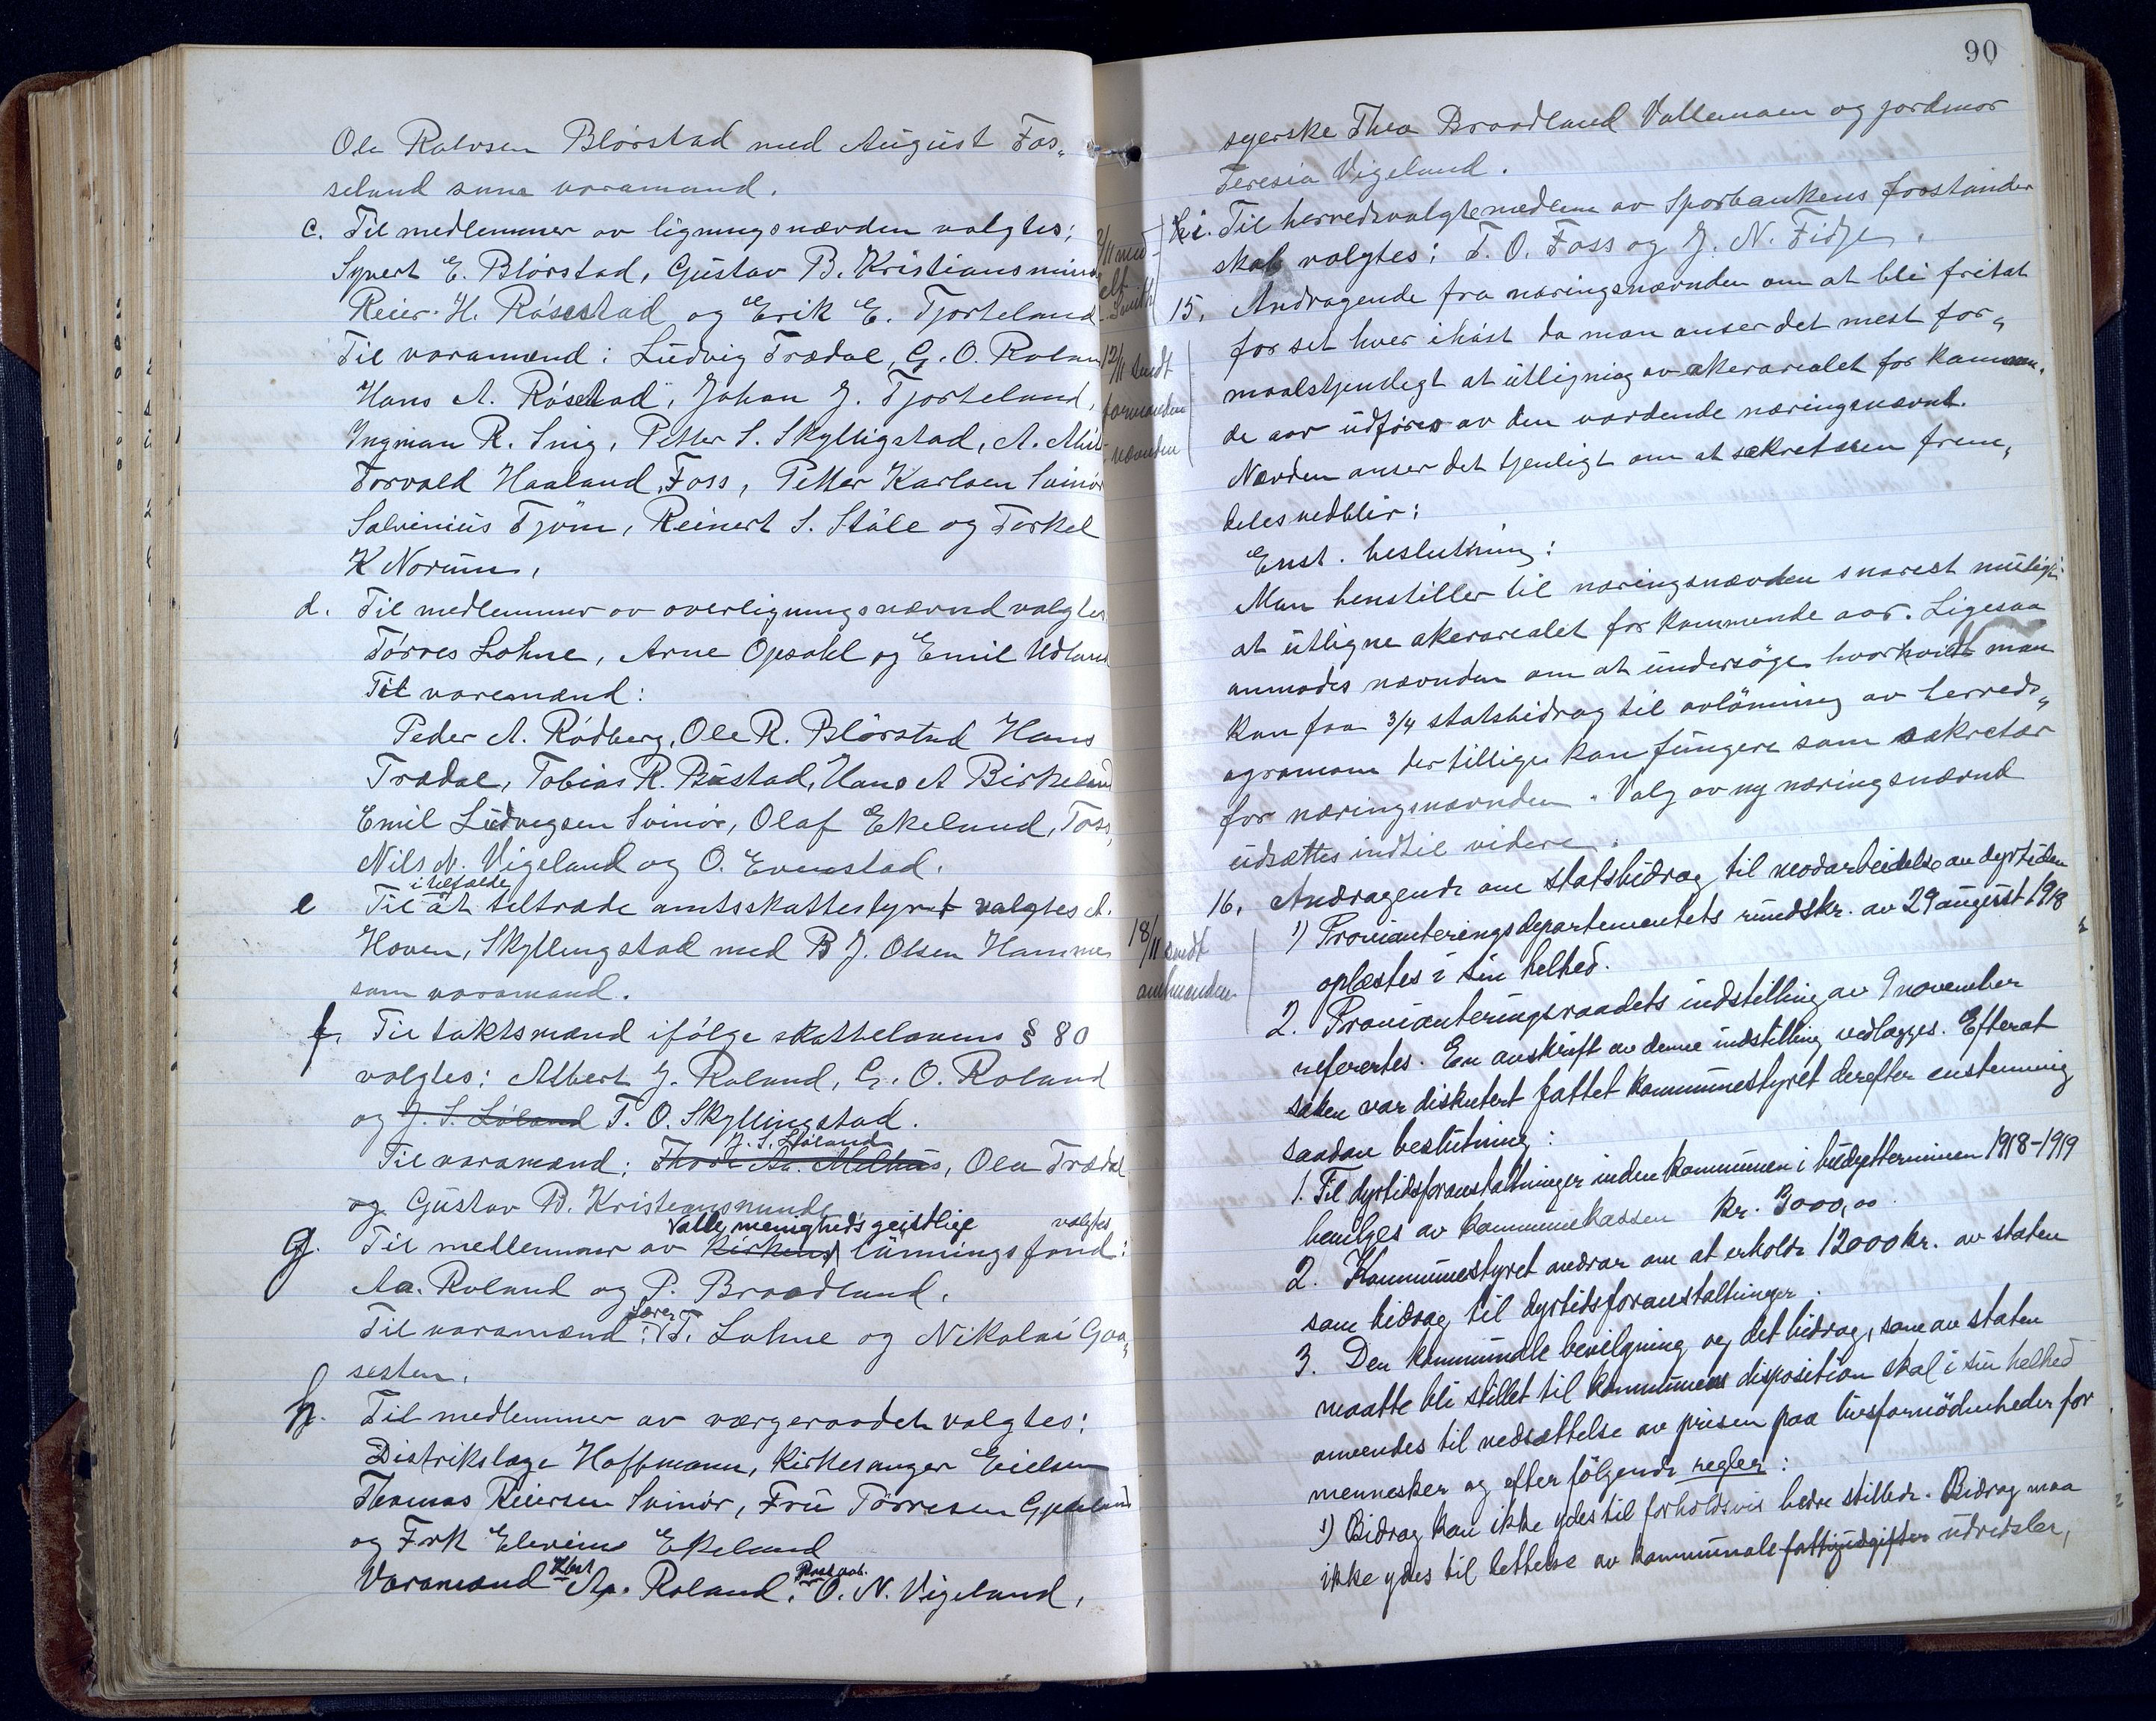 Ole Rolvsen Blörstad med August Fos„
seland som varamand.
c. Til medlemmer av ligningsnævden valgtes:
Syvert E. Blörstad, Gustav B. Kristiansminde
Reier H. Rösestad og Erik E. Tjorteland
Til varamænd: Ludvig Trædal, G. O. Roland
Hans A. Rösestad, Johan J. Tjorteland,
Ingman R. Snig, Petter S. Skyllingstad, A.
Torvald Haaland, Foss, Petter Karlsen Svinör
Salvinius Tjöm, Reinert S. Ståle og Torkel
K Norum,
d. Til medlemmer av overligningsnævnd valgtes
Törres Lohne, Arne Opsahl og Emil Udland
Til varamænd:
Peder A. Rödberg, Ole R. Blörstad Hans
Trædal, Tobias R. Båstad, Hans A Birkeland
Emil Ludvigsen Svinör, Olaf Ekelund, Foss,
Nils N. Vigeland og O. Evenstad.
e Til i tilfælde at tiltræde amtsskattestyret valgtes A.
Hoven, Skyllingstad med B J. Olsen Hammer
som varamand.
f. Til takstmænd ifölge skattelovens § 80
valgtes: Albert J. Roland, G. O. Roland
og J. S. Löland T. O. Skyllingstad.
J. S. Löland
Til varamænd: Melhus, Olav Trædal
og Gustav B. Kristiansminde
Valle menigheds geistlige valgtes
g. Til medlemmer av Kirkens lönningsfond:
Aa. Roland og P. Braadland.
Til varamænd: Sören T. Lohne og Nikolai Gaa„
sesten.
h. Til medlemmer av værgeraadet valgtes:
Distrikslæge Hoffmann, Kirkesanger Eielsen
Thomas Reiersen Svinör, Fru Törresen Gjeveland
og Frk Elevine Ekeland
Varamænd Aa. Roland, O. N. Vigeland,
11 med-
delt
Smith
12/11 sendt
formanden
i nævnden
18/11 sendt
amtmanden
90
syerske Thea Braadland Vallemoen og jordmor
Teresia Vigeland.
i. Til herredsvalgte medlem av Sparbankens forstander
skab valgtes: T. O. Foss og J. N. Fidje.
15. Andragende fra næringsnævnden om at bli fritat
for set hver ihöst da man anser det mest for„
maalstjenligt at utligning av akerarealet for kommen„
de aar udföres av den vordende næringsnævnd.
Nævden anser det tjenligt om at sekretæren frem„
deles vedblir:
Enst. beslutning:
Man henstiller til næringsnævden snarest muligt
at utligne akerarealet for kommende aar. Ligesaa
anmodes nævnden om at undersöge hvorvidt man
kan faa 3/4 statsbidrag til avlönning av herreds„
agronom der tillige kan fungere som sekretær
for næringsnævnden. Valg av ny næringsnævnd
udsættes indtil videre.
16. Andragende om statsbidrag til modarbeidelse av dyrtiden
1) Provianteringsdepartementets rundskr. av 29 august 1918
oplæstes i sin helhed.
2. Provianteringsraadets indstilling av 9 november
refererte. En avskrift av denne indstilling vedlægges. Efterat
saken var diskutert fattet kommunestyret derefter enstemmig
saadan beslutning:
1. Til dyrtidsforanstaltninger inden kommunen i budgetterminen 1918-1919
bevilges av kommunekassen kr. 3000,00.
2. Kommunestyret andrar om at erholde 12000 kr. av staten
som bidrag til dyrtidsforanstaltninger.
3. Den kommunale bevilgning og det bidrag, som av staten
maatte bli stillet til kommunens disposition skal i sin helhed
anvendes til nedsættelse av prisen paa livsfornödenheder for
mennesker og efter fölgende regler:
1) Bidrag kan ikke ydes til forholdsvis bedre stillede. Bidrag maa
ikke ydes til lettelse av kommunale fattigudgifter udredsler,